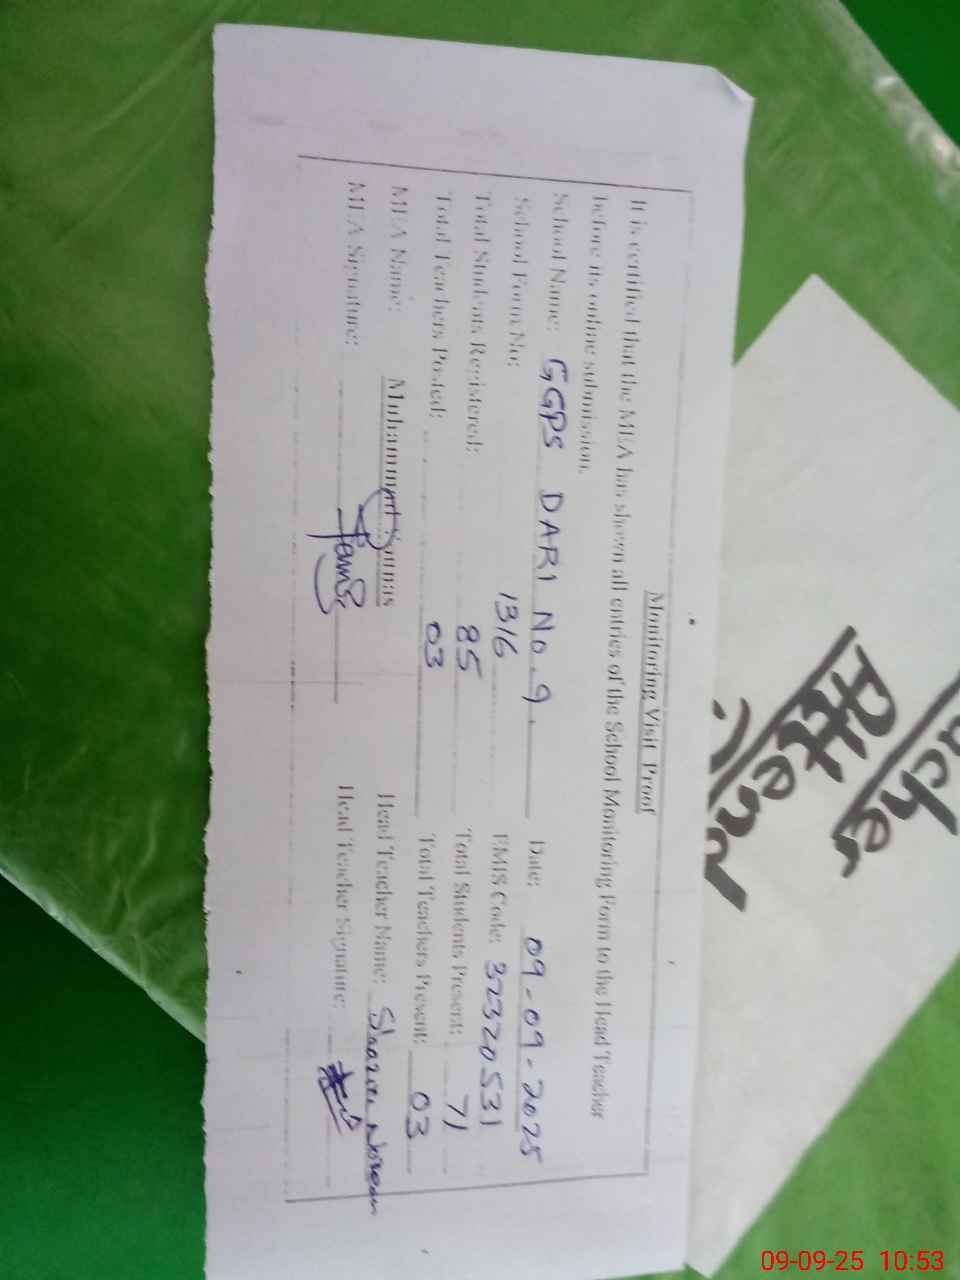 Monitoring Visit Proof
It is certified that the MEA has shown all entries of the School Monitoring Form to the Head Teacher
before its online submission.
School Name: GGPS DARI No. 9. Date: 09-09-2025
School Form No: 1316 EMIS Code: 32320531
Total Students Registered: 85 Total Students Present: 71
Total Teachers Posted: 03 Total Teachers Present: 03
MEA Name: Muhammad Younas Head Teacher Name: Noreen
MEA Signature: Head Teacher Signature:
Attend
09-09-25 10:53